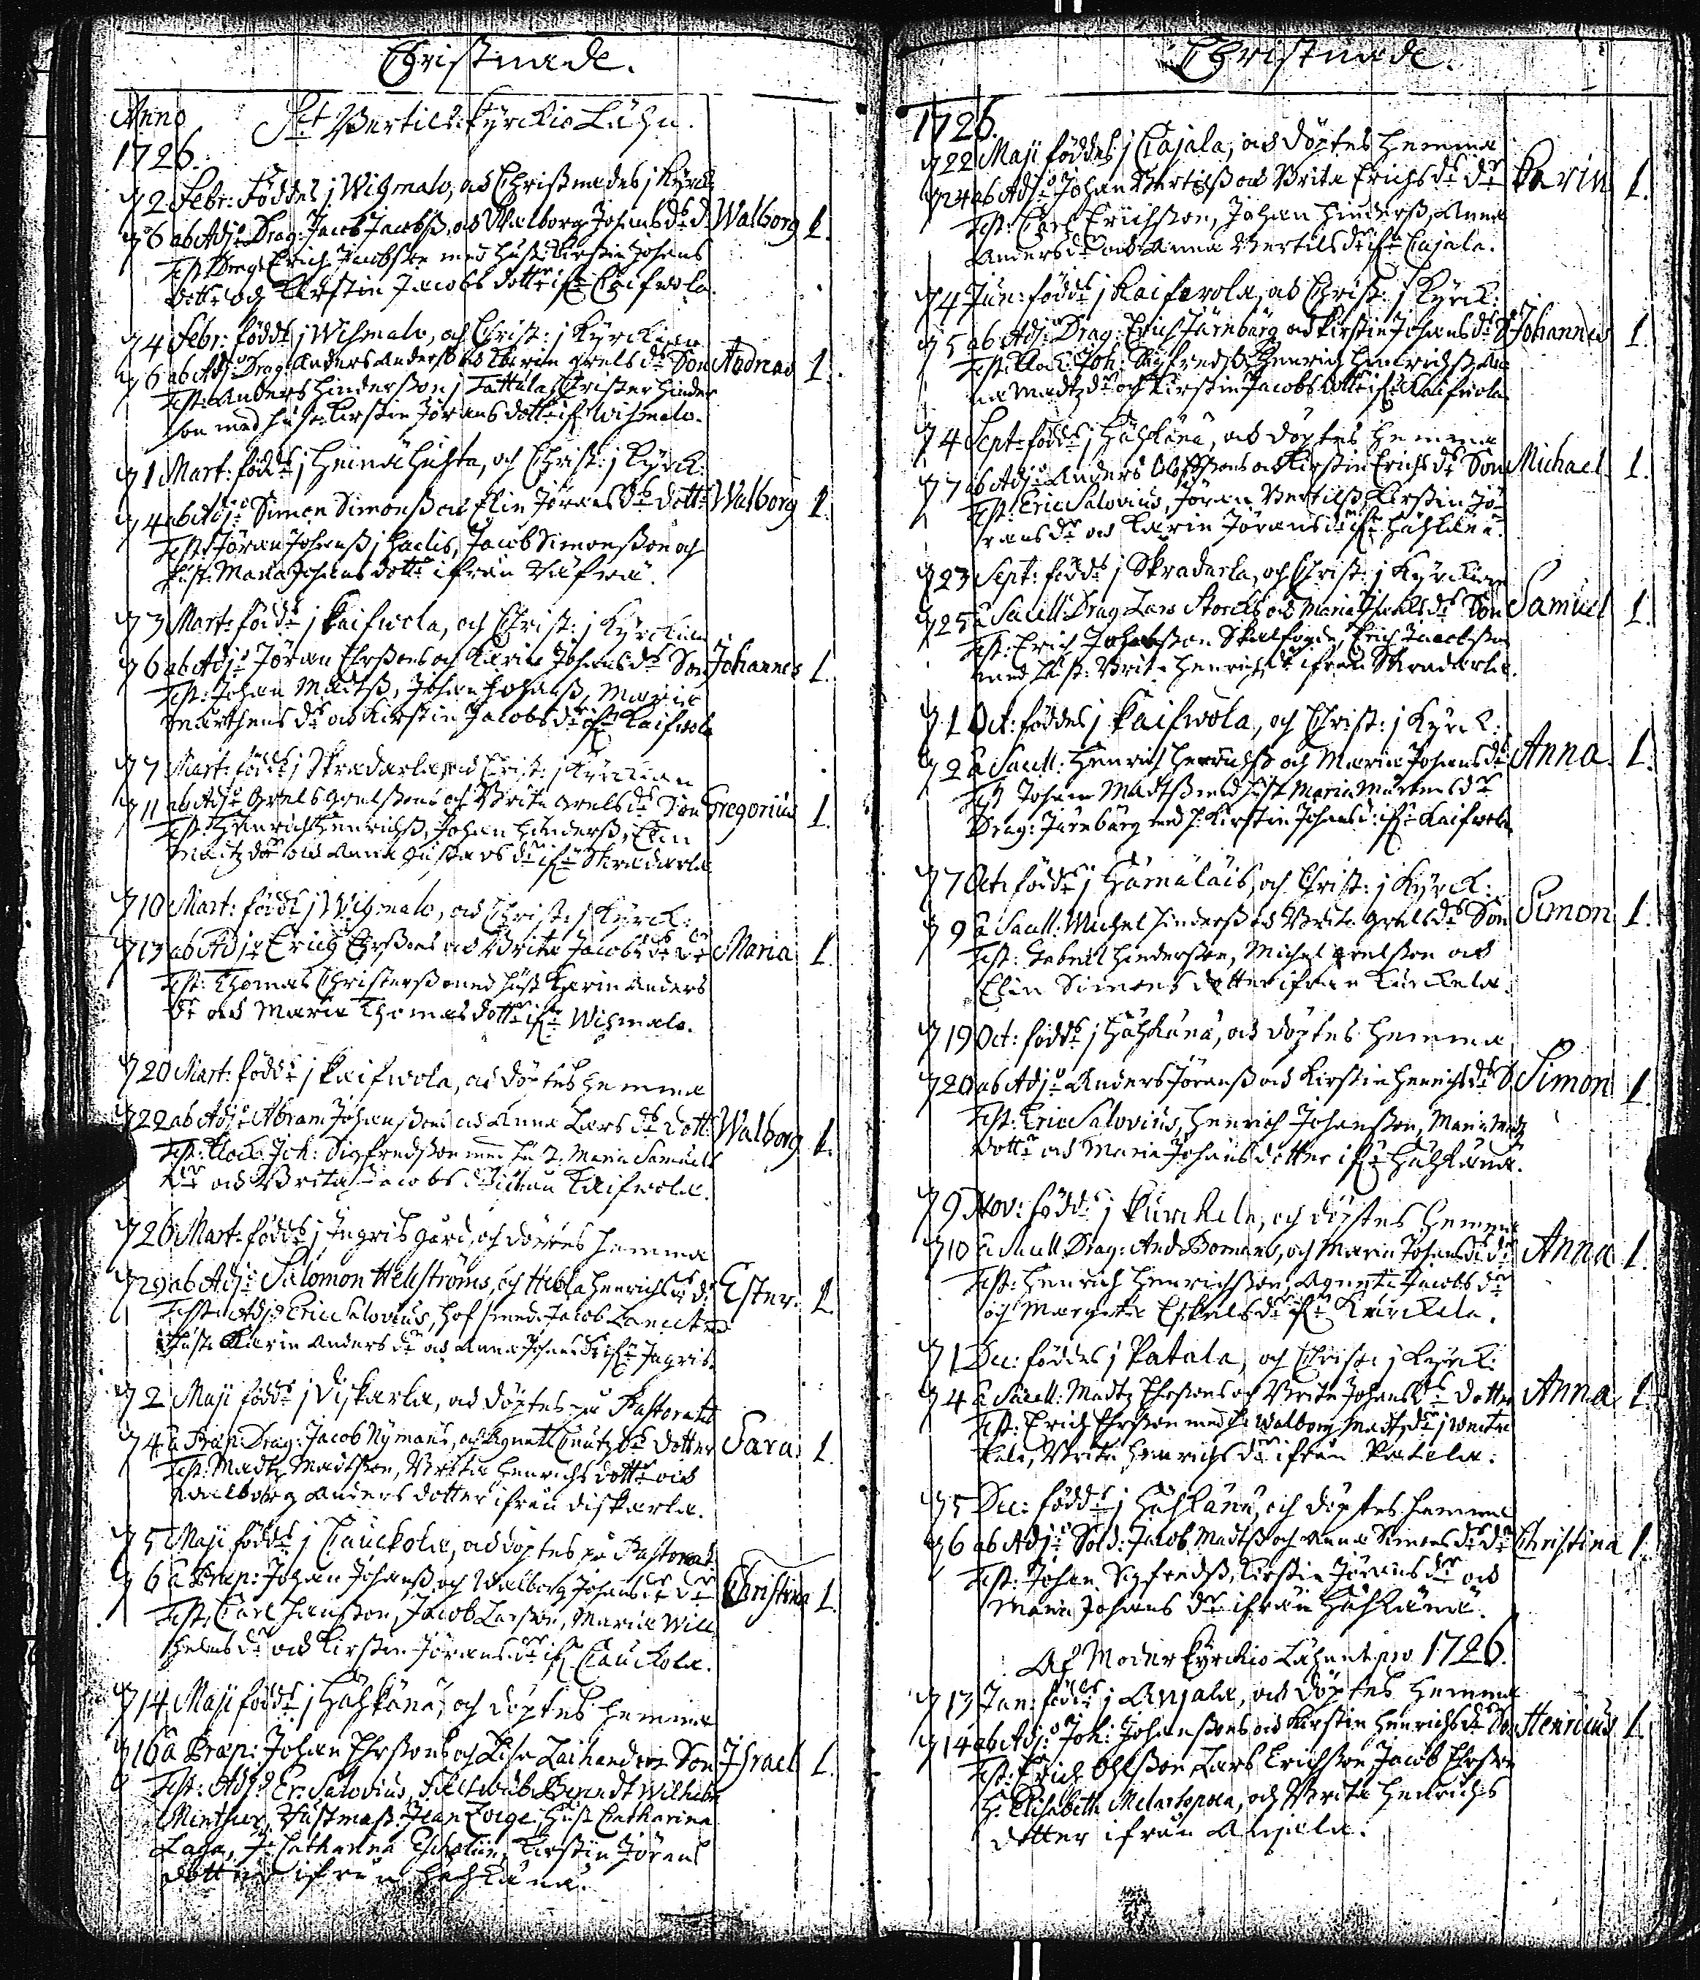 Christnade.
Anno St Bertils Kyrckio Lähn.
1726.
D 2 Febr: föddes j Wihmalo, och Christnades j Kyrck:
D 6 ab Adj: Drag: Jacob Jacobsß, och Walborg Johans d: d. Walborg 1.
Test: Drag: Erich Jacobsson med hust: Kirstin Johans
dotter och Kirstin Jacobs dotter ifr: Kaifwola.
D 4 Febr: född j Wihmalo, och Christ: j Kyrckian
D 6 ab Adj: Drag: Anders Andersß och Karin Grels d: Son Andreas 1.
Test: Anders Hindersson j Tattula, Christer Hinders
son med hust: Kirstin Jörans dotter ifr: Wihmalo.
D 1 Mart: född j Heinä, och Christ: j Kyrck:
D 4 ab Adj: Simon Simonsß och Elin Jörans d: dotter Walborg 1.
Test: Jöran Johansß j, Jacob Simonsson och
hust: Maria Johans dotter ifrån
D 3 Mart: född j Kaifwola, och Christ: j Kyrckian
D 6 ab Adj: Jöran Ehrssons och Karin Johans d: Son Johannes 1.
Test: Johan Madtsß, Johan Johansß, Maria
Mårthens d: och Kirstin Jacobs d: ifr: Kaifwola
D 7 Mart: född j Skradarla, och Christ: j Kyrckian
D 11 ab Adj: Grels Grelssons och Brita Grels d: Son Gregorius 1.
Test: Henrich Henrichsß, Johan Hindersß, Elin
Madtz d: och Anna Gustafs d: ifr: Skradarla
D 10 Mart: född j Wihmalo, och Christ: j Kyrck:
D 13 ab Adj: Erich Ehrssons och Brita Jacobs d: d: Maria 1.
Test: Thomas Christersß med hust: Karin Anders
d: och Maria Thomas dotter ifr: Wihmalo.
D 20 Mart: född j Kaifwola, och döptes hemma
D 22 ab Adj: Abram Johanssons och Anna Lars d: dott: Walborg 1.
Test: Klock: Joh: Sigfredsson med hu: Maria Samuels
d: och Brita Jacobs d: ifrån Kaifwola.
D 26 Mart: född j Ingris gård, och döptes hemma
D 29 ab Adj: Salomon Hellströms, och Hebla Henrichs d: d: Ester. 1.
Test: Adj: Eric Salovius, Hof smed: Jacob
hust: Karin Anders d: och Anna Johans d: ifr: Ingris.
D 2 Maji född j Diskarla, och döptes på Pastoratet
D 4 a Præp: Drag: Jacob Nymans, och Agneta Cnutz d: dotter Sara 1.
Test: Madtz Madtsson, Brita Henrichs dotter och
Walborg Anders dotter ifrån Diskarla.
D 5 Maji född j Cauckola, och döptes på Pastorat
D 6 a Præp: Johan Johansß och Walborg Johans d: d: Christina 1.
Test: Carl Hansson, Jacob Larsson, Maria Will
helms d: och Kirstin Jörans d: ifr: Cauckola.
D 14 Maji född j Hähkänä, och döptes hemma
D 16 a Præp: Johan Ehrssons och Lisa Laihanders Son Israel 1.
Test: Adj: Er: Salovius, Fältwäb: Berendt Wilhelm
Minther, Rustmäst: Jean, hust: Catharina
Laga, J: Catharina, Kirstin Jörans
dotter ifrån Hähkänä.
Christnade.
1726.
D 22 Maji föddes j Cajala, och döptes hemma
D 24 ab Adj: Johan Bertilsß och Brita Erichs d: d: Karin 1.
Test: Carl Erichsson, Johan Hindersß, Anna
Anders d: och Anna Bertils d: ifr: Cajala.
D 4 Jun: född j Kaifwola, och Christ: j Kyrck:
D 5 ab Adj: Drag: Erich Järnbärg och Kirstin Johans d: S Johannes 1.
Test: Klock: Joh: Sigfredsß, Henrich Henrichsß, An
na Madtz d: och Kirstin Jacobs dotter ifr: Kaifwola
D 4 Sept: född j Hähkänä, och döptes hemma
D 7 ab Adj: Anders Olofssons och Kirstin Erichs d: Son Michael 1.
Test: Eric Salovius, Jöran Bertilsß, Kirstin Jö
rans d: och Karin Jörans d: ifr: Hähkänä.
D 23 Sept: född j Skradarla, och Christ: j Kyrckian
D 25 a Sacell: Drag: Lars Storcks och Maria d: Son Samuel 1.
Test: Erich Johansson, Erich Jacobsson
med hust: Brita Henrichs d: ifrån Skradarla.
D 1 Oct: föddes j Kaifwola, och Christ: j Kyrck:
D 2 a Sacell: Henrich Henrichsß och Maria Johans d: Anna 1.
Test: Johan Madtsß med hust: Maria Mårtens d:
Drag: Järnbärg med h: Kirstin Johans d: ifr: Kaifwola
D 7 Oct: född j Hämäläis, och Christ: j Kyrck:
D 9 a Sacell: Michel Hindersß och Brita Grels d: Son Simon 1.
Test: Gabriel Hindersson, Michel Grelsson och
Elin Simons dotter ifrån Kurckela.
D 19 Oct: född j Hähkänä, och döptes hemma
D 20 ab Adj: Anders Jöransß och Kirstin Henrichs d: S Simon 1.
Test: Eric Salovius, Henrich Johansson, Maria Madtz
dotter och Maria Johans dotter ifr: Hähkänä.
D 9 Nov: född j Kurckela, och döptes hemma
D 10 a Sacell: Drag: And: Bomans, och Maria Johans d: d: Anna 1.
Test: Henrich Henrichsson, Agneta Jacobs d:
och Margeta Eskels d: ifr: Kurckela.
D 1 Dec: föddes j Patala, och Christ: j Kyrck:
D 4 a Sacell: Madtz Ehrssons och Brita Johans d: dotter Anna 1.
Test: Erich Ehrsson med h: Walborg Madtz d: j
kela, Brita Henrichs d: ifrån Patala.
D 5 Dec: född j Hähkänä, och döptes hemma
D 6 ab Adj: Sold: Jacob Madtsß och Anna Simons d: d: Christina 1.
Test: Johan Sigfredsß, Kirstin Jörans d: och
Maria Johans d: ifrån Hähkänä.
Af Moder Kyrckio Lähnet pro 1726.
D 13 Jan: född j Anjala, och döptes hemma
D 14 ab Adj: Joh: Johanssons och Kirstin Henrichs d: Son Henricus 1.
Test: Erich Ohlsson, Lars Erichsson, Jacob Ehrsson
H: Elisabeth Melartopæa, och Brita Henrichs
dotter ifrån Anjala.